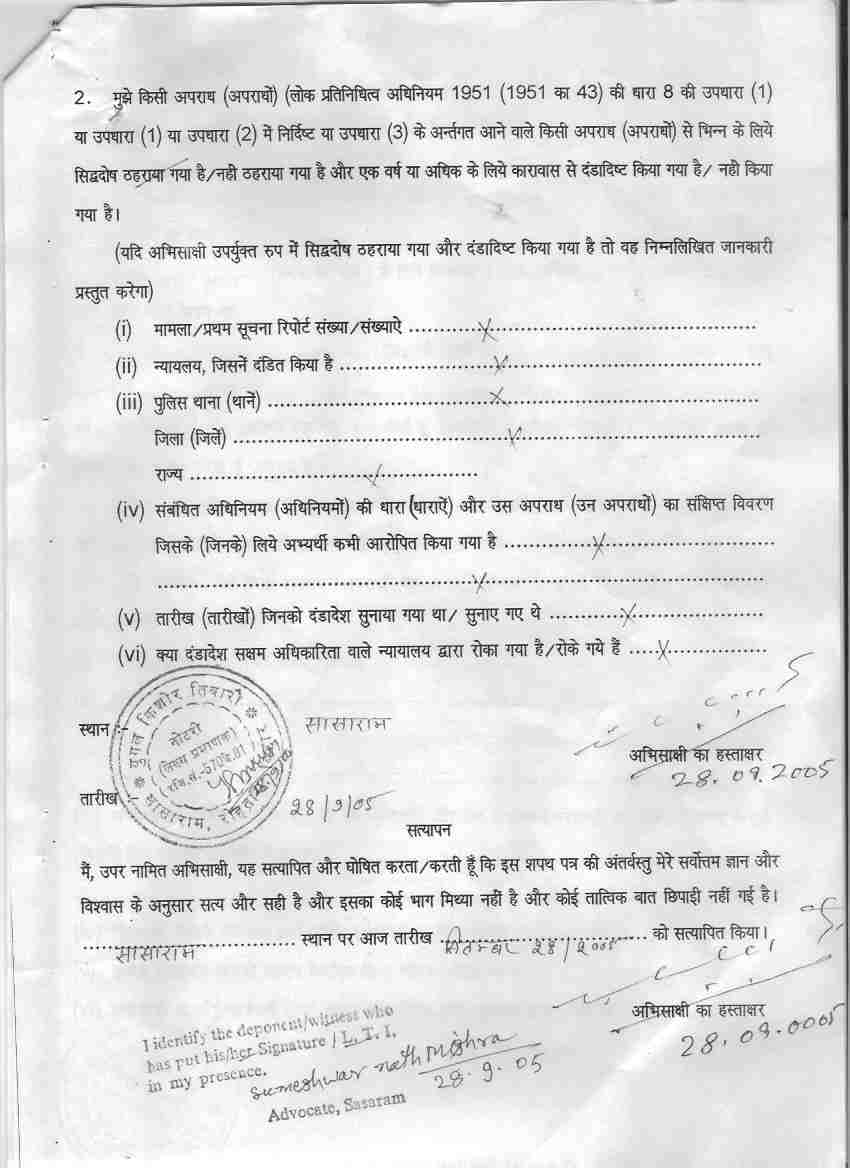 2. मुझे किसी अपराध (अपराधों) (लोक प्रतिनिधित्व अधिनियम 1951 (1951 का 43) की धारा 8 की उपधारा (1)
या उपधारा (1) या उपधारा (2) में निर्दिष्ट या उपधारा (3) के अर्न्तगत आने वाले किसी अपराध (अपराधों) से भिन्न के लिये
सिद्वदोष ठहराया गया है/नही ठहराया गया है और एक वर्ष या अधिक के लिये कारावास से दंडादिष्ट किया गया है/ नही किया
गया है।
(यदि अभिसाक्षी उपर्युक्त रुप में सिद्वदोष ठहराया गया और दंडादिष्ट किया गया है तो वह निम्नलिखित जानकारी
प्रस्तुत करेगा)
(i) मामला/प्रथम सूचना रिपोर्ट संख्या/संख्याऐ ..........X..........
(ii) न्यायलय, जिसनें दंडित किया है ..........X..........
(iii) पुलिस थाना (थानें) ..........X..........
जिला (जिलें) ..........X..........
राज्य ..........X..........
(iv) संबंधित अधिनियम (अधिनियमों) की धारा (धाराऐं) और उस अपराध (उन अपराधों) का संक्षिप्त विवरण
जिसके (जिनके) लिये अभ्यर्थी कभी आरोपित किया गया है ..........X..........
..........X..........
(v) तारीख (तारीखों) जिनको दंडादेश सुनाया गया था/ सुनाए गए थे ..........X..........
(vi) क्या दंडादेश सक्षम अधिकारिता वाले न्यायालय द्वारा रोका गया है/रोके गये हैं .....X..........
स्थान :- सासाराम
किशोर तिवारी
नोटरी
सासाराम, रोहतास
अभिसाक्षी का हस्ताक्षर
28.09.2005
तारीख :- 28/9/05
सत्यापन
मैं, उपर नामित अभिसाक्षी, यह सत्यापित और घोषित करता/करती हूँ कि इस शपथ पत्र की अंतर्वस्तु मेरे सर्वोत्तम ज्ञान और
विश्वास के अनुसार सत्य और सही है और इसका कोई भाग मिथ्या नहीं है और कोई तात्विक बात छिपाई नहीं गई है।
सासाराम स्थान पर आज तारीख सितम्बर 28/2005 को सत्यापित किया।
अभिसाक्षी का हस्ताक्षर
28.09.0005
I identify the deponent/witness who
has put his/her Signature / L. T. I.
in my presence.
Sumeshwar nath Mishra
28.9.05
Advocate, Sasaram